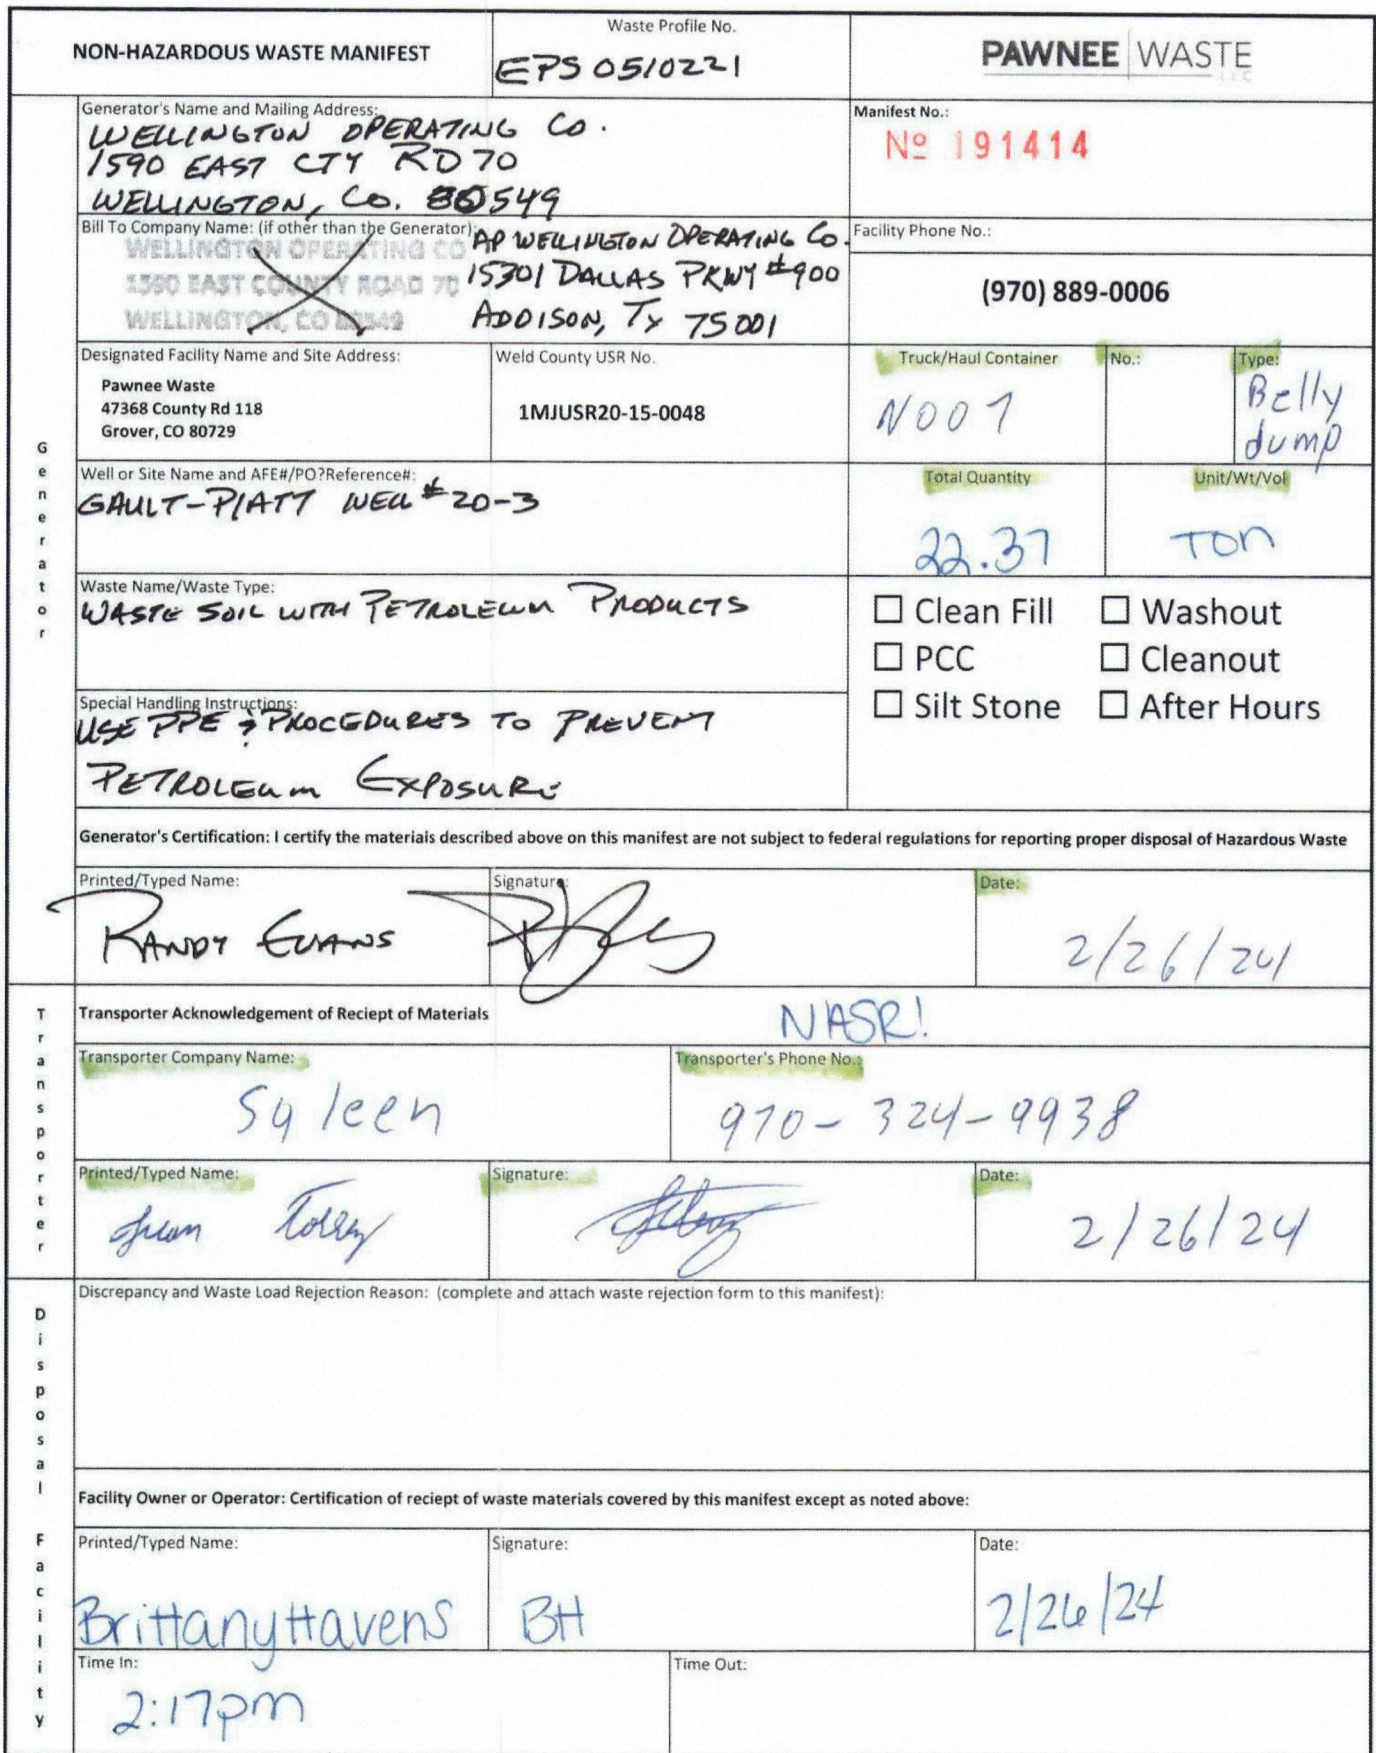 NON-HAZARDOUS WASTE MANIFEST
Waste Profile No.
EPS 0510221
PAWNEE WASTE
LLC
Generator's Name and Mailing Address:
WELLINGTON OPERATING CO.
1590 EAST CTY RD 70
WELLINGTON, CO. 80549
Manifest No.:
Nº 191414
Bill To Company Name: (if other than the Generator):
WELLINGTON OPERATING CO
1590 EAST COUNTY ROAD 70
WELLINGTON, CO 80549
AP WELLINGTON OPERATING CO.
15301 DALLAS PKWY #900
ADDISON, TX 75001
Facility Phone No.:
(970) 889-0006
Designated Facility Name and Site Address:
Pawnee Waste
47368 County Rd 118
Grover, CO 80729
Weld County USR No.
1MJUSR20-15-0048
Truck/Haul Container
N007
No.:
Type:
Belly
dump
Generator
Well or Site Name and AFE#/PO?Reference#:
GAULT-PIATT WELL #20-3
Total Quantity
22.37
Unit/Wt/Vol
TON
Waste Name/Waste Type:
WASTE SOIL WITH PETROLEUM PRODUCTS
☐ Clean Fill ☐ Washout
☐ PCC ☐ Cleanout
☐ Silt Stone ☐ After Hours
Special Handling Instructions:
USE PPE & PROCEDURES TO PREVENT
PETROLEUM EXPOSURE
Generator's Certification: I certify the materials described above on this manifest are not subject to federal regulations for reporting proper disposal of Hazardous Waste
Printed/Typed Name:
RANDY EVANS
Signature:
Date:
2/26/24
Transporter
Transporter Acknowledgement of Reciept of Materials
NASR!
Transporter Company Name:
Sqleen
Transporter's Phone No.:
970-324-9938
Printed/Typed Name:
Juan
Signature:
Date:
2/26/24
Disposal Facility
Discrepancy and Waste Load Rejection Reason: (complete and attach waste rejection form to this manifest):
Facility Owner or Operator: Certification of reciept of waste materials covered by this manifest except as noted above:
Printed/Typed Name:
Brittany Havens
Signature:
BH
Date:
2/26/24
Time In:
2:17pm
Time Out: